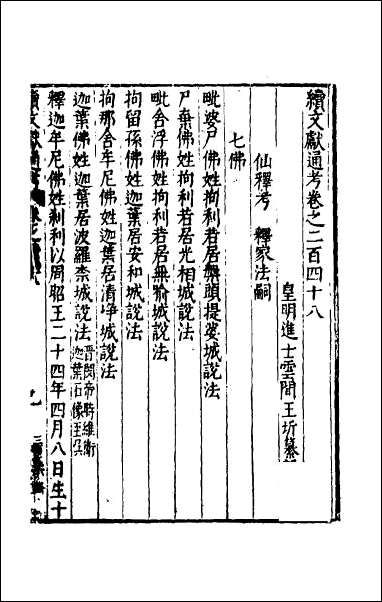 續文獻通考卷之二百四十八
皇明進士雲間王圻纂
仙釋考　釋家法嗣
七佛
毗婆尸佛姓拘利若居槃頭提婆城說法
尸棄佛姓拘利若居光相城說法
毗舍浮佛姓拘利若居無喻城說法
拘留孫佛姓迦葉居安和城說法
拘那舍牟尼佛姓迦葉居清淨城說法
迦葉佛姓迦葉居波羅柰城說法晉閔帝時維衛
迦葉石像至吳
釋迦牟尼佛姓剎利以周昭王二十四年四月八日生十
續文獻通考